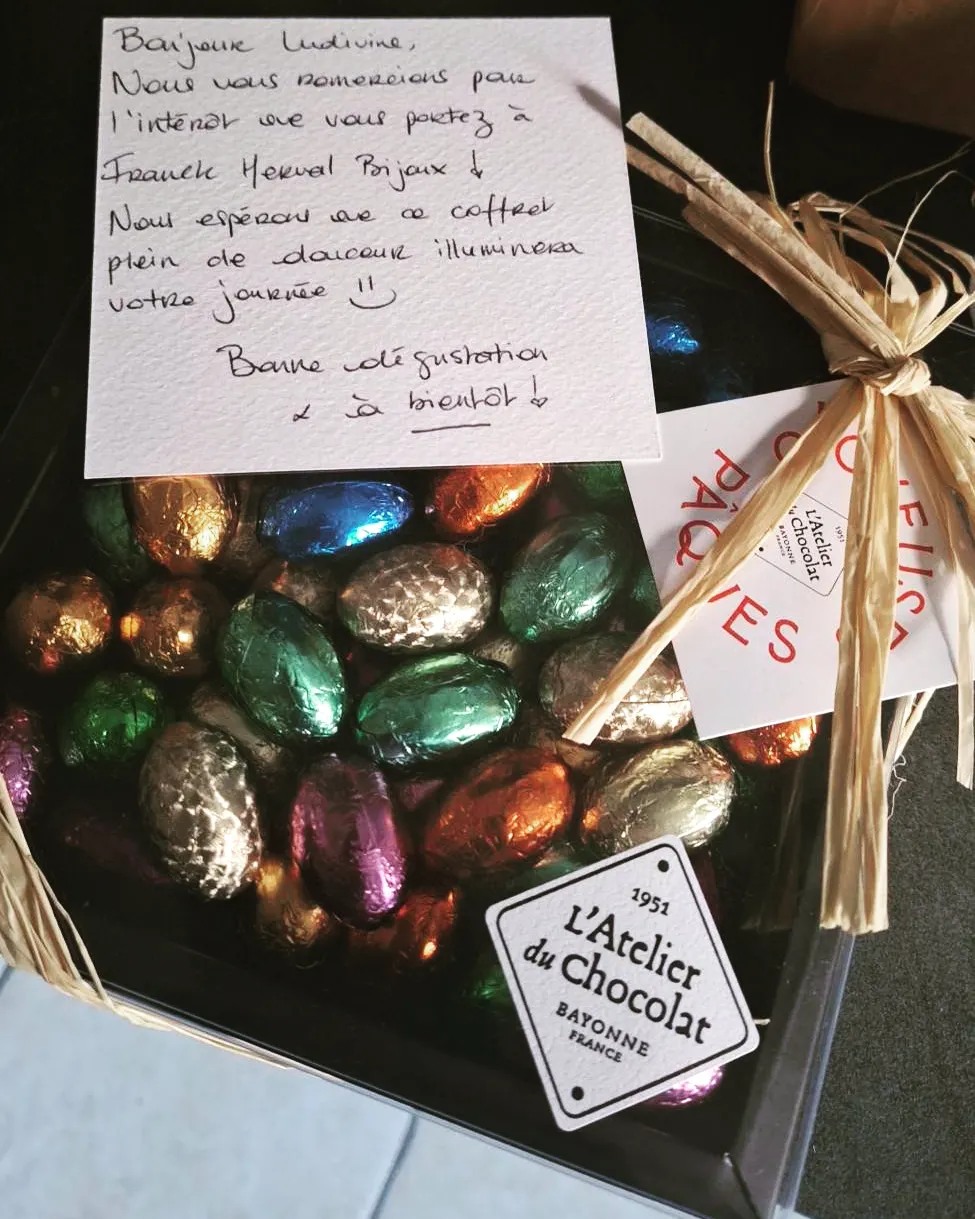 Bonjour Ludivine,
Nous vous remercions pour
l'intérêt que vous portez à
Franck Herval Bijoux !
Nous espérons que ce coffret
plein de douceur illuminera
votre journée
Bonne dégustation
& à bientôt !
PÂQUES
1951
L'Atelier
du Chocolat
BAYONNE
FRANCE
1951
L'Atelier
du Chocolat
BAYONNE
FRANCE